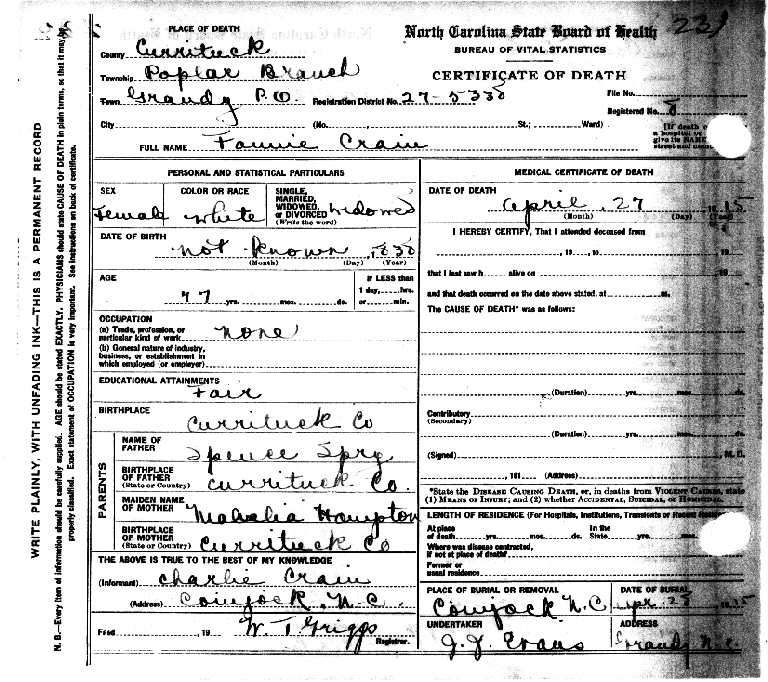 PLACE OF DEATH
County Currituck
Township Poplar Branch
Town Grandy P.O. Registration District No. 27-5338
City (No. , St.; Ward)
FULL NAME Fannie Crain
North Carolina State Board of Health
231
BUREAU OF VITAL STATISTICS
CERTIFICATE OF DEATH
File No.
Registered No. 8
[If death
a hospital or
give its NAME
WRITE PLAINLY, WITH UNFADING INK—THIS IS A PERMANENT RECORD
N. B.—Every item of information should be carefully supplied. AGE should be stated EXACTLY. PHYSICIANS should state CAUSE OF DEATH in plain terms, so that it may be
properly classified. Exact statement of OCCUPATION is very important. See instructions on back of certificate.
PERSONAL AND STATISTICAL PARTICULARS
SEX
Female
COLOR OR RACE
white
SINGLE,
MARRIED,
WIDOWED,
or DIVORCED
(Write the word)
Widowed
DATE OF BIRTH
not known, 1838
(Month) (Day) (Year)
AGE
77 yrs. mos. ds.
If LESS than
1 day, hrs.
or min.
OCCUPATION
(a) Trade, profession, or
particular kind of work none
(b) General nature of industry,
business, or establishment in
which employed (or employer)
EDUCATIONAL ATTAINMENTS
Fair
BIRTHPLACE
Currituck Co
PARENTS
NAME OF
FATHER
Spence Spry
BIRTHPLACE
OF FATHER
(State or Country)
Currituck Co.
MAIDEN NAME
OF MOTHER
Mahalia Hampton
BIRTHPLACE
OF MOTHER
(State or Country)
Currituck Co
THE ABOVE IS TRUE TO THE BEST OF MY KNOWLEDGE
(Informant) Charlie Crain
(Address) Coinjock, N.C.
Filed , 19 W. T. Griggs
Registrar.
MEDICAL CERTIFICATE OF DEATH
DATE OF DEATH
April, 27 1915
(Month) (Day) (Year)
I HEREBY CERTIFY, That I attended deceased from
, 19 , to , 19
that I last saw h alive on , 19
and that death occurred on the date above stated, at m.
The CAUSE OF DEATH* was as follows:
(Duration) yrs. mos. ds.
Contributory
(Secondary)
(Duration) yrs. mos. ds.
(Signed) M. D.
, 191 (Address)
*State the DISEASE CAUSING DEATH, or, in deaths from VIOLENT CAUSES, state
(1) MEANS OF INJURY; and (2) whether ACCIDENTAL, SUICIDAL, or HOMICIDAL.
LENGTH OF RESIDENCE (For Hospitals, Institutions, Transients or Recent
At place
of death yrs. mos. ds.
In the
State yrs. mos.
Where was disease contracted,
if not at place of death?
Former or
usual residence
PLACE OF BURIAL OR REMOVAL
Coinjock N.C
DATE OF BURIAL
Apr. 28 1915
UNDERTAKER
J. J. Evans
ADDRESS
Grandy N.C.